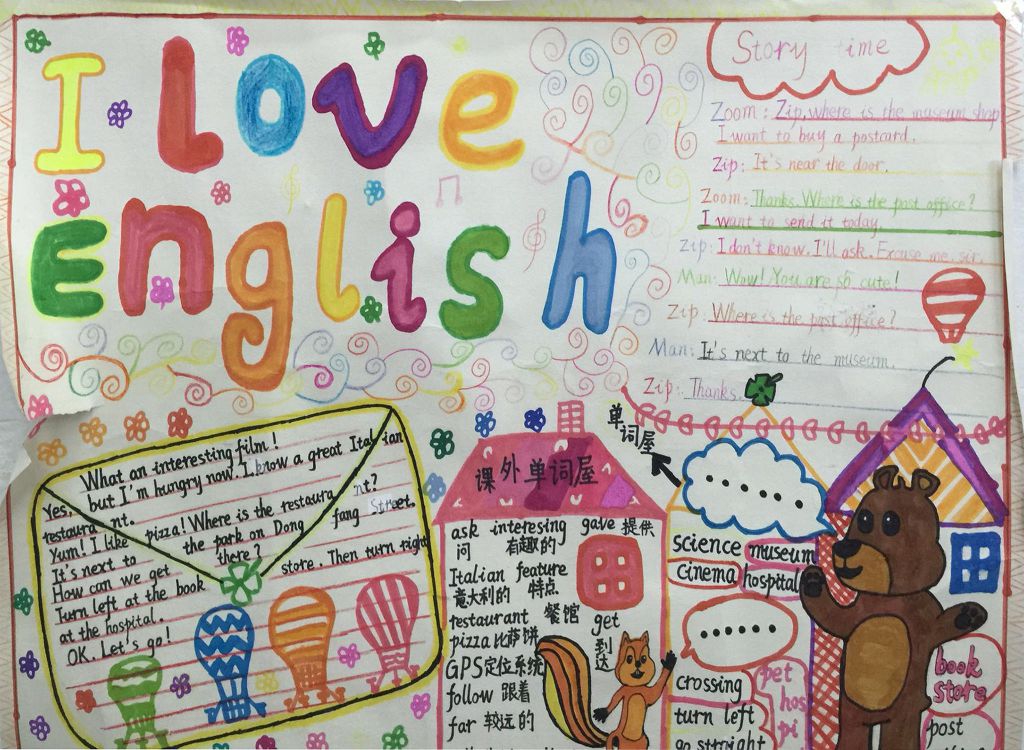 I Love
English
Story time
Zoom: Zip, where is the museum shop
I want to buy a postcard.
Zip: It's near the door.
Zoom: Thanks. Where is the post office?
I want to send it today.
Zip: I don't know. I'll ask. Excuse me, sir.
Man: Wow! You are so cute!
Zip: Where is the post office?
Man: It's next to the museum.
Zip: Thanks.
What an interesting film!
Yes, but I'm hungry now. I know a great Italian
restaurant.
Yum! I like pizza! Where is the restaurant?
It's next to the park on Dong fang Street.
How can we get there?
Turn left at the book store. Then turn right
at the hospital.
OK. Let's go!
课外单词屋
ask interesing gave 提供
问 有趣的
Italian feature
意大利的 特点
restaurant 餐馆
pizza 比萨饼
get
到达
GPS定位系统
follow 跟着
far 较远的
单词屋
......
science museum
cinema hospital
......
crossing
turn left
go strright
pet
hos
pi
book
store
post